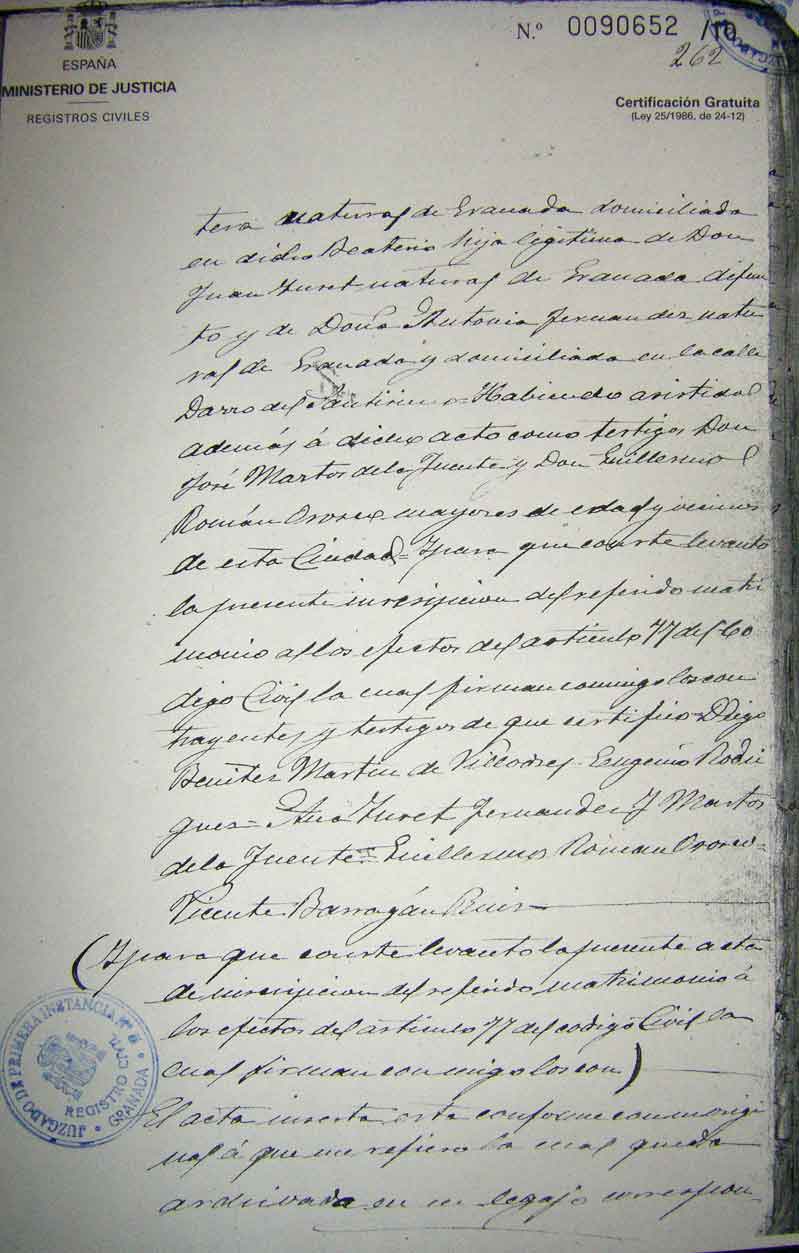 ESPAÑA
MINISTERIO DE JUSTICIA
REGISTROS CIVILES
N.º 0090652 /10
262
Certificación Gratuita
(Ley 25/1986, de 24-12)
tera natural de Granada domiciliada
en dicho Beaterio hija legitima de Don
Juan Yuret natural de Granada difun
to y de Doña Antonia Fernandez natu
ral de Granada y domiciliada en la calle
Darro del = Habiendo asistido
además á dicho acto como testigos Don
José Martos de la Fuente y Don Guillermo
Román Orozco mayores de edad y vecinos
de esta Ciudad = Y para que conste levanto
la presente inscripcion del referido matri
monio a los efectos del articulo 77 del Co
digo Civil la cual firman conmigo los con
trayentes y testigos de que certifico = Diego
Benitez Martin de Villodres - Eugenio Rodri
guez = Ana Yuret Fernandez J Martos
de la Fuente = Guillermo Román Orozco =
Vicente Barragán Ruiz
(Y para que conste levanto la presente acta
de inscripcion del referido matrimonio á
los efectos del articulo 77 del codigo Civil la
cual firman conmigo los con)
El acta inserta esta conforme con su origi
nal á que me refiero la cual queda
archivada en su legajo correspon-
JUZGADO DE PRIMERA INSTANCIA
REGISTRO CIVIL
GRANADA